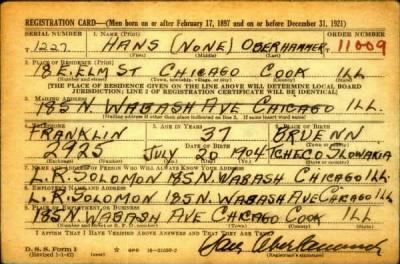 REGISTRATION CARD—(Men born on or after February 17, 1897 and on or before December 31, 1921)
SERIAL NUMBER 1. NAME (Print) ORDER NUMBER
T 1227 HANS (NONE) OBERHAMMER 11009
(First) (Middle) (Last)
2. PLACE OF RESIDENCE (Print)
18 E. ELM ST CHICAGO COOK ILL
(Number and street) (Town, township, village, or city) (County) (State)
[THE PLACE OF RESIDENCE GIVEN ON THE LINE ABOVE WILL DETERMINE LOCAL BOARD
JURISDICTION; LINE 2 OF REGISTRATION CERTIFICATE WILL BE IDENTICAL]
3. MAILING ADDRESS
185 N. WABASH AVE CHICAGO ILL.
[Mailing address if other than place indicated on line 2. If same insert word same]
4. TELEPHONE 5. AGE IN YEARS 6. PLACE OF BIRTH
FRANKLIN 37 BRUENN
DATE OF BIRTH (Town or county)
2925 JULY 20 1904 TCHECOSLOVAKIA
(Exchange) (Number) (Mo.) (Day) (Yr.) (State or country)
7. NAME AND ADDRESS OF PERSON WHO WILL ALWAYS KNOW YOUR ADDRESS
L. R. SOLOMON 185 N. WABASH CHICAGO ILL.
8. EMPLOYER'S NAME AND ADDRESS
L. R. SOLOMON 185 N. WABASH AVE CHICAGO ILL
9. PLACE OF EMPLOYMENT OR BUSINESS
185 N. WABASH AVE CHICAGO COOK ILL
(Number and street or R. F. D. number) (Town) (County) (State)
I AFFIRM THAT I HAVE VERIFIED ABOVE ANSWERS AND THAT THEY ARE TRUE.
D. S. S. Form 1
(Revised 1-1-42) (over)
Hans Oberhammer